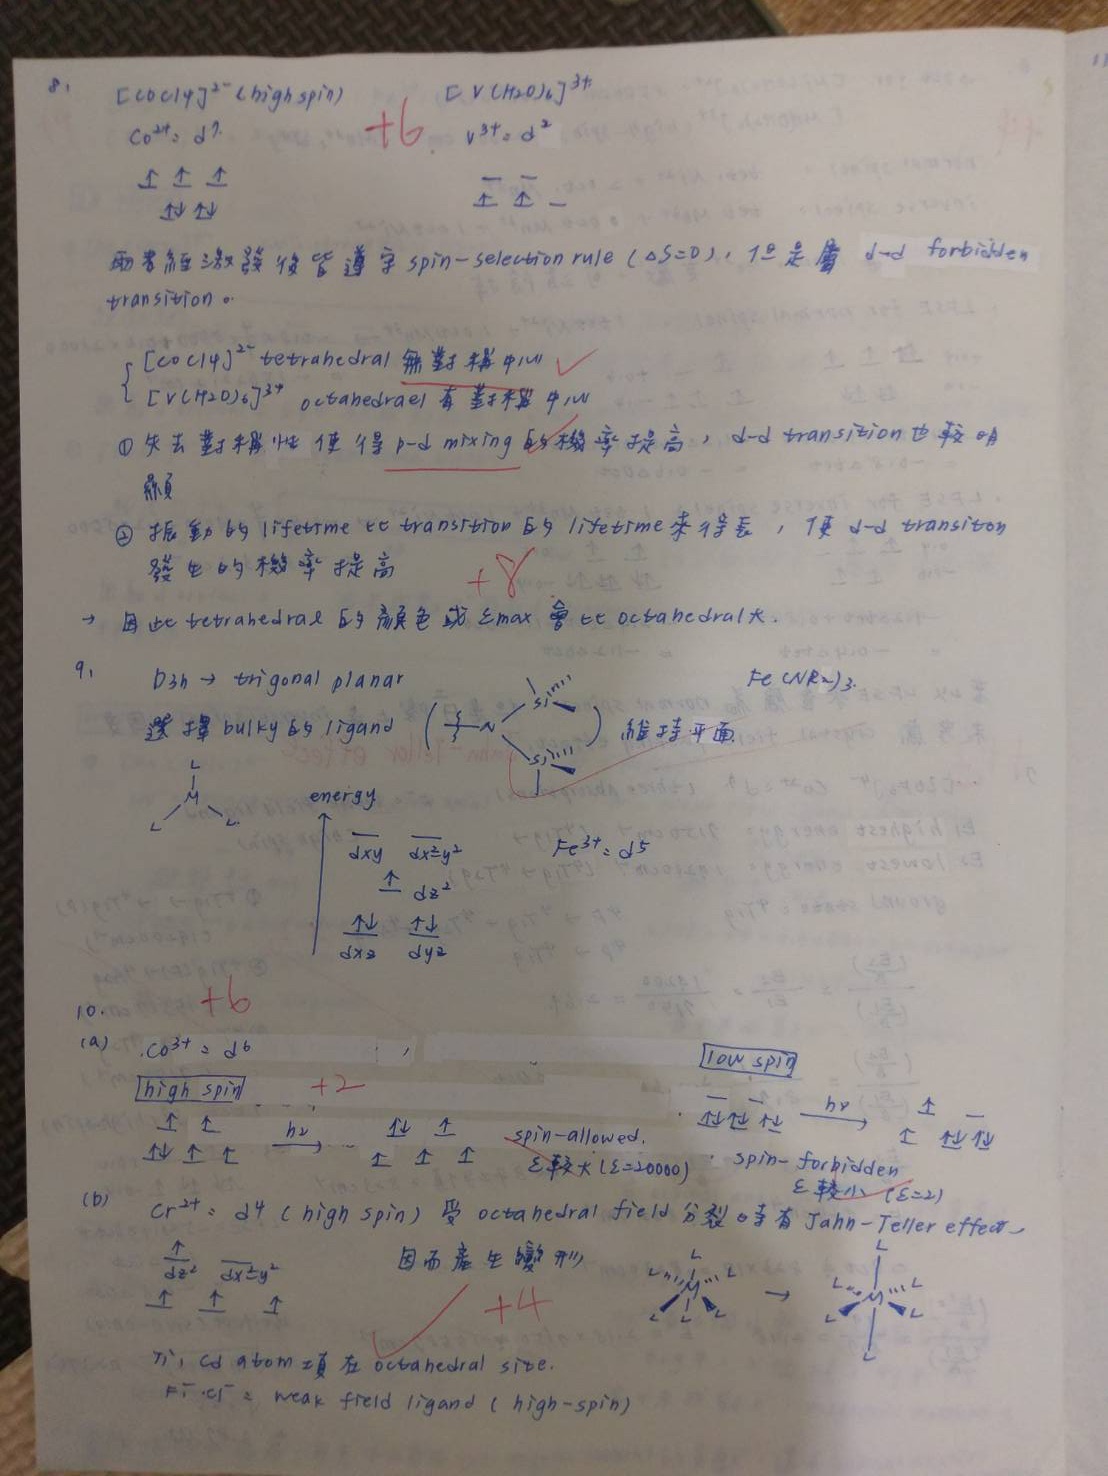 8.
[CoCl4]2- (high spin) [V(H2O)6]3+
Co2+ = d7 +6 V3+ = d2
兩者經激發後皆遵守 spin-selection rule (ΔS=0), 但是屬 d-d forbidden
transition。
[CoCl4]2- tetrahedral 無對稱中心
[V(H2O)6]3+ octahedrael 有對稱中心
① 失去對稱性使得 p-d mixing 的機率提高, d-d transition 也較明
顯
② 振動的 lifetime 比 transition 的 lifetime 來得長, 使 d-d transiton
發生的機率提高
+8
→ 因此 tetrahedral 的顏色或 εmax 會比 octahedral 大.
9.
D3h → trigonal planar Fe(NR2)3.
選擇 bulky 的 ligand ( N Si Si ) 維持平面.
L
M
L L
energy
dxy dx2-y2 Fe3+ = d5
dz2
dxz dyz
+6
10.
(a) Co3+ = d6
high spin +2 low spin
hν hν
spin-allowed. spin-forbidden
ε較大 (ε=20000) ε較小 (ε=2)
(b) Cr2+ = d4 (high spin) 受 octahedral field 分裂時有 Jahn-Teller effect,
dz2 dx2-y2 因而產生變形
L L L M L L L → L L L M L L L
+4
cd atom 填在 octahedral site.
F- Cl- = weak field ligand (high-spin)